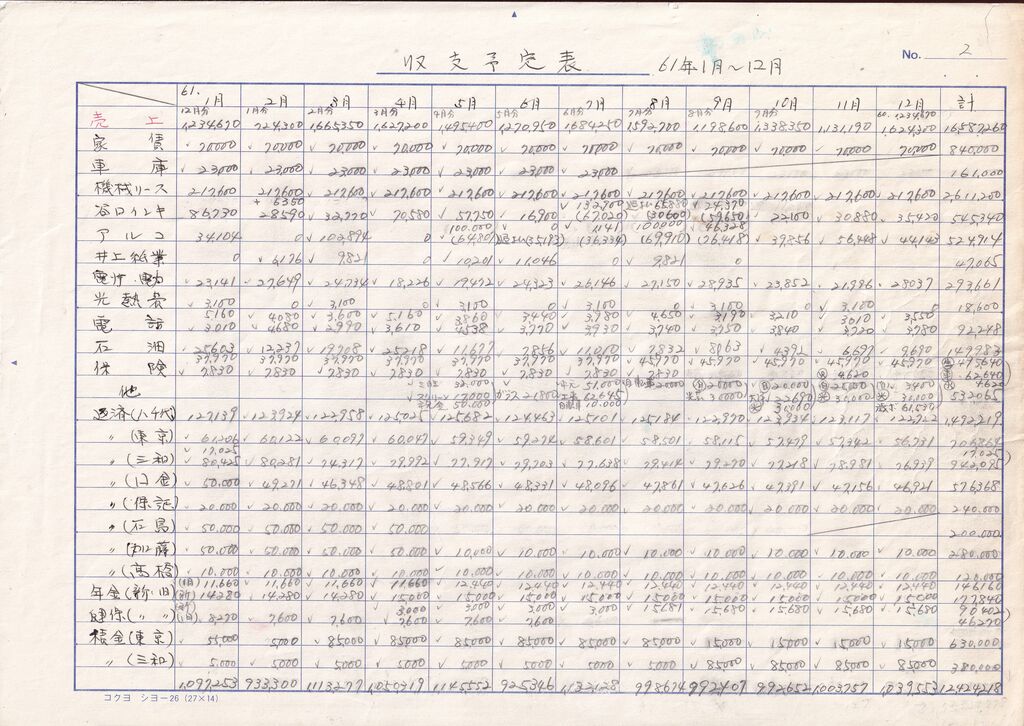 収支予定表 61年1月～12月 No. 2
61. 1月 2月 3月 4月 5月 6月 7月 8月 9月 10月 11月 12月 計
12月分 1月分 2月分 3月分 4月分 5月分 6月分 7月分 8月分 9月分
売上 1,234,670 724,300 1,665,350 1,627,200 1,495,400 1,270,950 1,684,250 1,592,700 1,198,600 1,338,350 1,131,190 1,624,300 16,587,260
家賃 70,000 70,000 70,000 70,000 70,000 70,000 70,000 70,000 70,000 70,000 70,000 70,000 840,000
車庫 23,000 23,000 23,000 23,000 23,000 23,000 23,000 161,000
機械リース 217,600 217,600 217,600 217,600 217,600 217,600 217,600 217,600 217,600 217,600 217,600 217,600 2,611,200
+ 6350
谷口インキ 86,730 28,590 32,770 70,580 57,750 16,900 (67,020) (30600) (59650) 22,100 30,880 35,420 545,340
アルコ 34,104 0 102,894 0 (6480) (35,193) (36,334) (69,910) (26,418) 39,856 56,448 44,143 524,914
井上紙業 0 6,176 9,821 0 10,201 11,046 0 9,821 0 47,065
電灯電力 23,141 27,649 24,734 18,226 19,472 24,323 26,146 27,150 28,935 23,852 21,996 28,037 293,661
光熱費 3,100 0 3,100 0 3,100 0 3,100 0 3,100 0 3,100 0 18,600
5,160 4,080 3,600 5,160 3,860 3,440 3,780 4,650 3,190 3,210 3,010 3,550
電話 3,010 4,680 2,990 3,610 4,538 3,770 3,930 3,740 3,750 3,840 3,720 3,780 92,218
石油 25,603 12,237 19,708 25,218 11,677 7,856 11,010 7,832 8,063 4,392 6,697 9,690 149,983
37,970 37,970 37,970 37,970 37,970 37,970 37,970 45,970 45,970 45,970 45,970 45,970
保険 7,830 7,830 7,830 7,830 7,830 7,830 7,830 4,620
他 532,065
返済(八千代) 127,139 123,924 122,958 125,025 125,682 124,463 125,101 125,184 122,970 123,934 123,117 122,722 1,492,219
〃(東京) 61,206 60,122 60,097 60,047 59,349 59,274 58,601 58,501 58,115 57,479 57,342 56,731 706,864
17,025 17,025
〃(三和) 80,425 80,281 74,317 79,992 77,917 79,703 77,638 79,414 79,270 77,218 78,981 76,939 942,095
〃(日金) 50,000 49,271 46,348 48,801 48,566 48,331 48,096 47,861 47,626 47,391 47,156 46,921 576,368
〃(保証) 20,000 20,000 20,000 20,000 20,000 20,000 20,000 20,000 20,000 20,000 20,000 20,000 240,000
〃(石島) 50,000 50,000 50,000 50,000 200,000
〃(加藤) 50,000 50,000 50,000 50,000 10,000 10,000 10,000 10,000 10,000 10,000 10,000 10,000 280,000
〃(高橋) 10,000 10,000 10,000 10,000 10,000 10,000 10,000 10,000 10,000 10,000 10,000 10,000 120,000
(旧) 11,660 11,660 11,660 11,660 12,440 12,440 12,440 12,440 12,440 12,440 12,440 12,440 146,160
年金(新・旧) 14,280 14,280 14,280 15,000 15,000 15,000 15,000 15,000 15,000 15,000 15,000 15,000 177,840
(新) 3,000 3,000 3,000 3,000 15,681 15,680 15,680 15,680 15,680 90,402
健保(〃 〃) (旧) 8270 7,600 7,600 7,600 7,600 7,600 46,270
積金(東京) 55,000 5,000 85,000 85,000 85,000 85,000 85,000 85,000 15,000 15,000 15,000 15,000 630,000
〃(三和) 5,000 5,000 5,000 5,000 5,000 5,000 5,000 5,000 85,000 85,000 85,000 85,000 380,000
1,097,253 933,300 1,113,277 1,050,319 1,145,552 925,346 1,132,128 998,674 992,407 992,652 1,003,757 1,039,553 12,424,218
コクヨ シヨー26 (27×14)